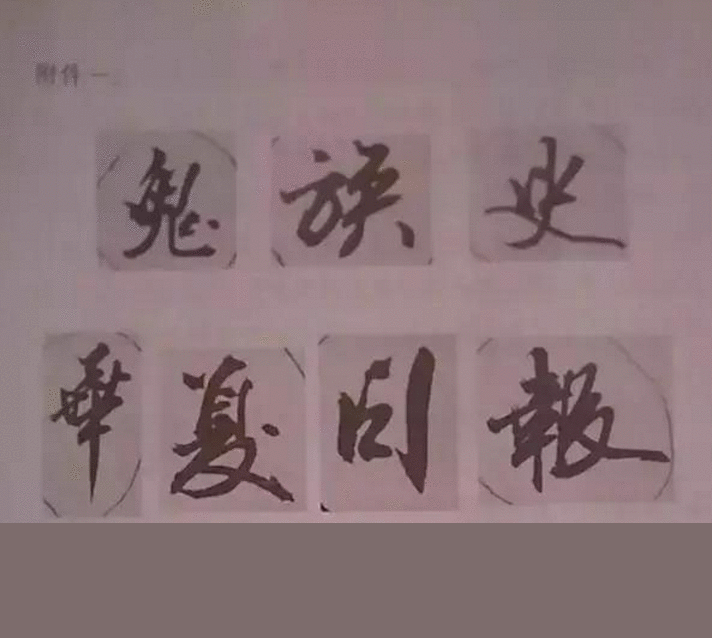 附件一:
鬼族史
華夏日報